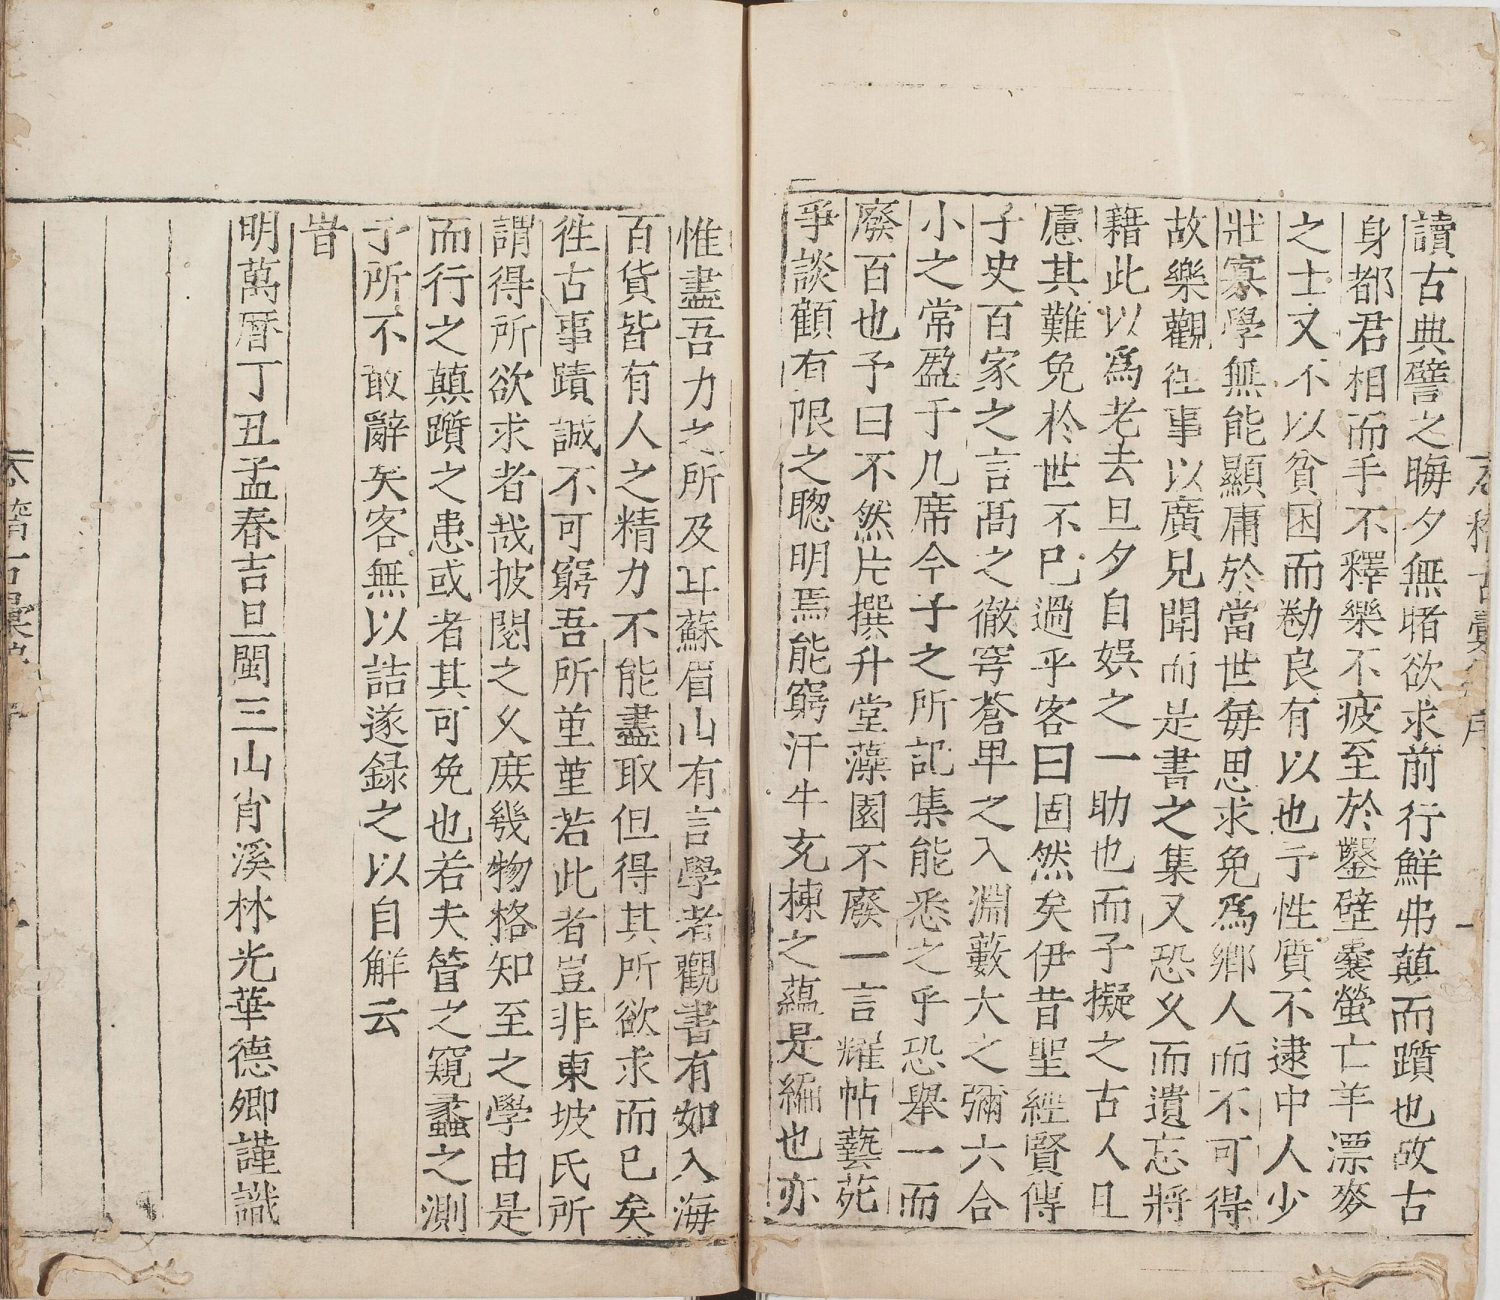 讀古典譬之晦夕無睹欲求前行鮮弗蒉而躓也故古
身都君相而手不釋樂不疲至於鑿壁囊螢亡羊漂麥
之士又不以貧困而勌良有以也予性質不逮中人少
壯寡學無能顯庸於當世每思求免爲鄉人而不可得
故樂觀往事以廣見聞而是書之集又恐久而遺忘將
藉此以爲老去旦夕自娛之一助也而予擬之古人且
慮其難免於世不已過乎客曰固然矣伊昔聖經賢傳
子史百家之言高之徹穹蒼卑之入淵藪大之彌六合
小之常盈于几席今子之所記集能悉之乎恐舉一而
廢百也予曰不然片撰升堂藻園不廢一言耀帖藝苑
爭談顧有限之聰明焉能窮汗牛充棟之蘊是編也亦
惟盡吾力之所及耳蘇眉山有言學者觀書有如入海
百貨皆有人之精力不能盡取但得其所欲求而已矣
徃古事蹟誠不可窮吾所堇堇若此者豈非東坡氏所
謂得所欲求者哉披閱之久庶幾物格知至之學由是
而行之顛躓之患或者其可免也若夫管之窺蠡之測
予所不敢辭矣客無以詰遂録之以自解云
旹
明萬曆丁丑孟春吉旦閩三山肖溪林光華德卿謹識